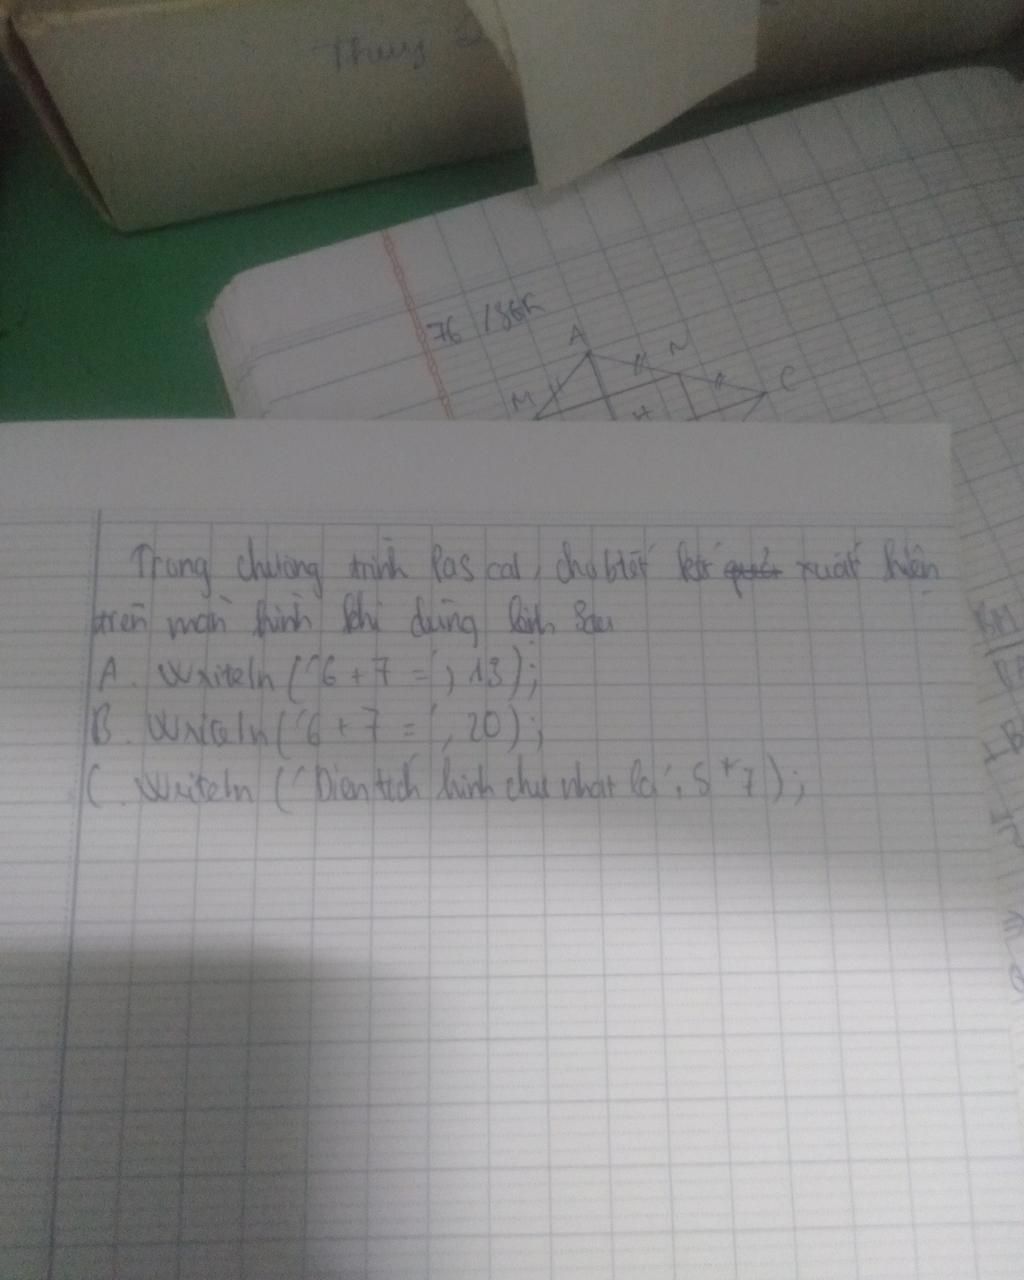 Thuy
76 / SGK
A
N
C
M
H
Trong chương trình Pascal, cho biết kết quả xuất hiện
trên màn hình khi dùng lệnh sau
A. Writeln ('6 + 7 = ', 13);
B. Writeln ('6 + 7 = ', 20);
C. Writeln ('Dien tich hinh chu nhat la', 5 * 7);